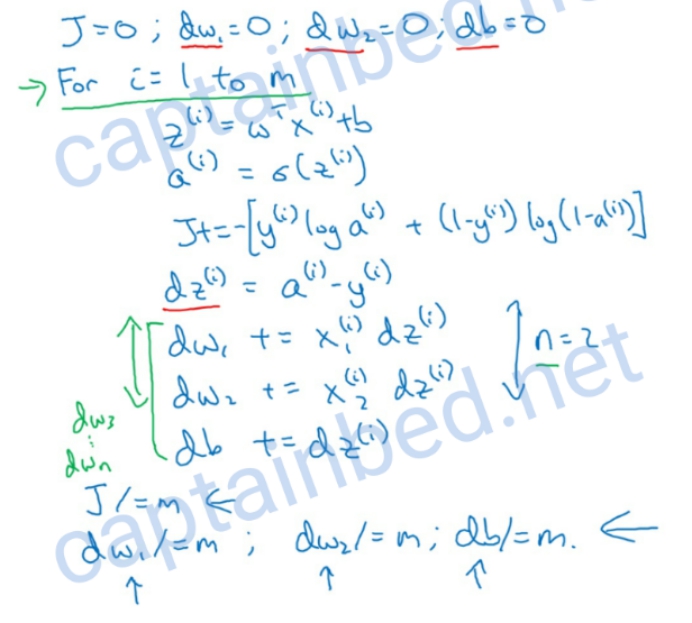 J=0; dw₁=0; dw₂=0; db=0
→ For i=1 to m
z⁽ⁱ⁾=ωᵀx⁽ⁱ⁾+b
a⁽ⁱ⁾ = σ(z⁽ⁱ⁾)
J+=-[y⁽ⁱ⁾ log a⁽ⁱ⁾ + (1-y⁽ⁱ⁾) log(1-a⁽ⁱ⁾)]
dz⁽ⁱ⁾ = a⁽ⁱ⁾-y⁽ⁱ⁾
dw₁ += x₁⁽ⁱ⁾ dz⁽ⁱ⁾
n=2
dw₂ += x₂⁽ⁱ⁾ dz⁽ⁱ⁾
db += dz⁽ⁱ⁾
dw₃
⋮
dwₙ
J/=m ←
dw₁/=m; dw₂/=m; db/=m. ←
↑ ↑ ↑
captainbed.net
captainbed.net